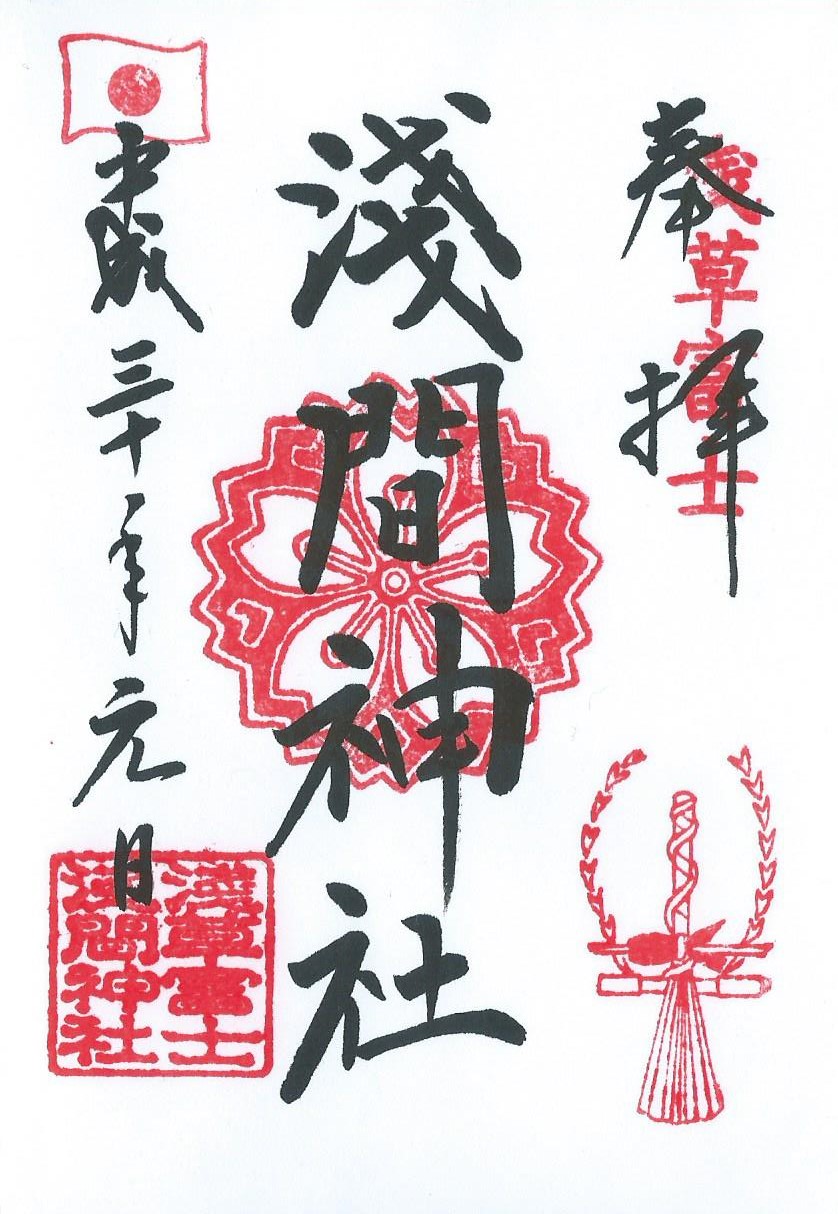 奉拝
淺草富士
淺間神社
平成三十年元日
淺草富士
淺間神社